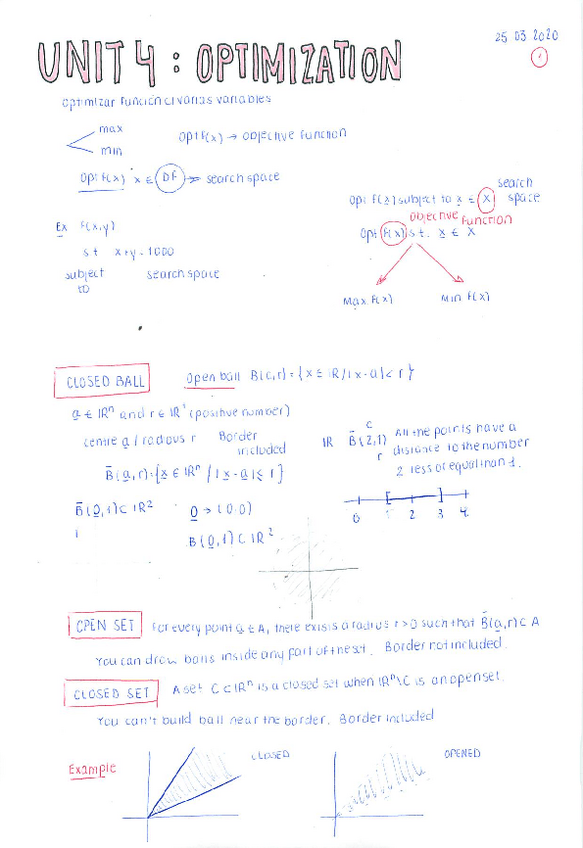 25 03 2020
1
UNIT 4 : OPTIMIZATION
Optimizar función c/ varias variables
max
min
Opt f(x) → objective function
Opt f(x) x ∈ DF → search space
Opt f(x) subject to x ∈ X search space
objective function
Opt f(x) s.t. x ∈ X
Max f(x) Min f(x)
Ex f(x,y)
s t x+y = 1000
subject to search space
CLOSED BALL Open ball B(c,r) = {x ∈ IR / |x-a| < r}
a ∈ IRⁿ and r ∈ IR⁺ (positive number)
centre a / radious r Border included
B̄(a,r) = {x ∈ IRⁿ / |x-a| ≤ r}
IR B̄(2,1) All the points have a
c
r
distance to the number
2 less or equal than 1.
0 1 2 3 4
B̄(0,1) ⊂ IR² 0 → (0,0)
B(0,1) ⊂ IR²
OPEN SET For every point a ∈ A, there exists a radius r>0 such that B̄(a,r) ⊂ A
You can draw balls inside any part of the set. Border not included.
CLOSED SET A set C ⊂ IRⁿ is a closed set when IRⁿ\C is an open set.
You can't build ball near the border. Border included
Example CLOSED OPENED